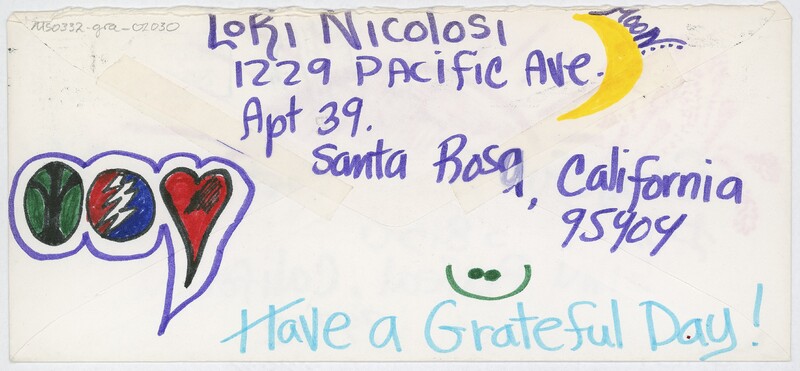 MS0332-gra_02030
Lori Nicolosi
Moon
1229 Pacific Ave.
Apt 39.
Santa Rosa, California
95404
Have a Grateful Day!